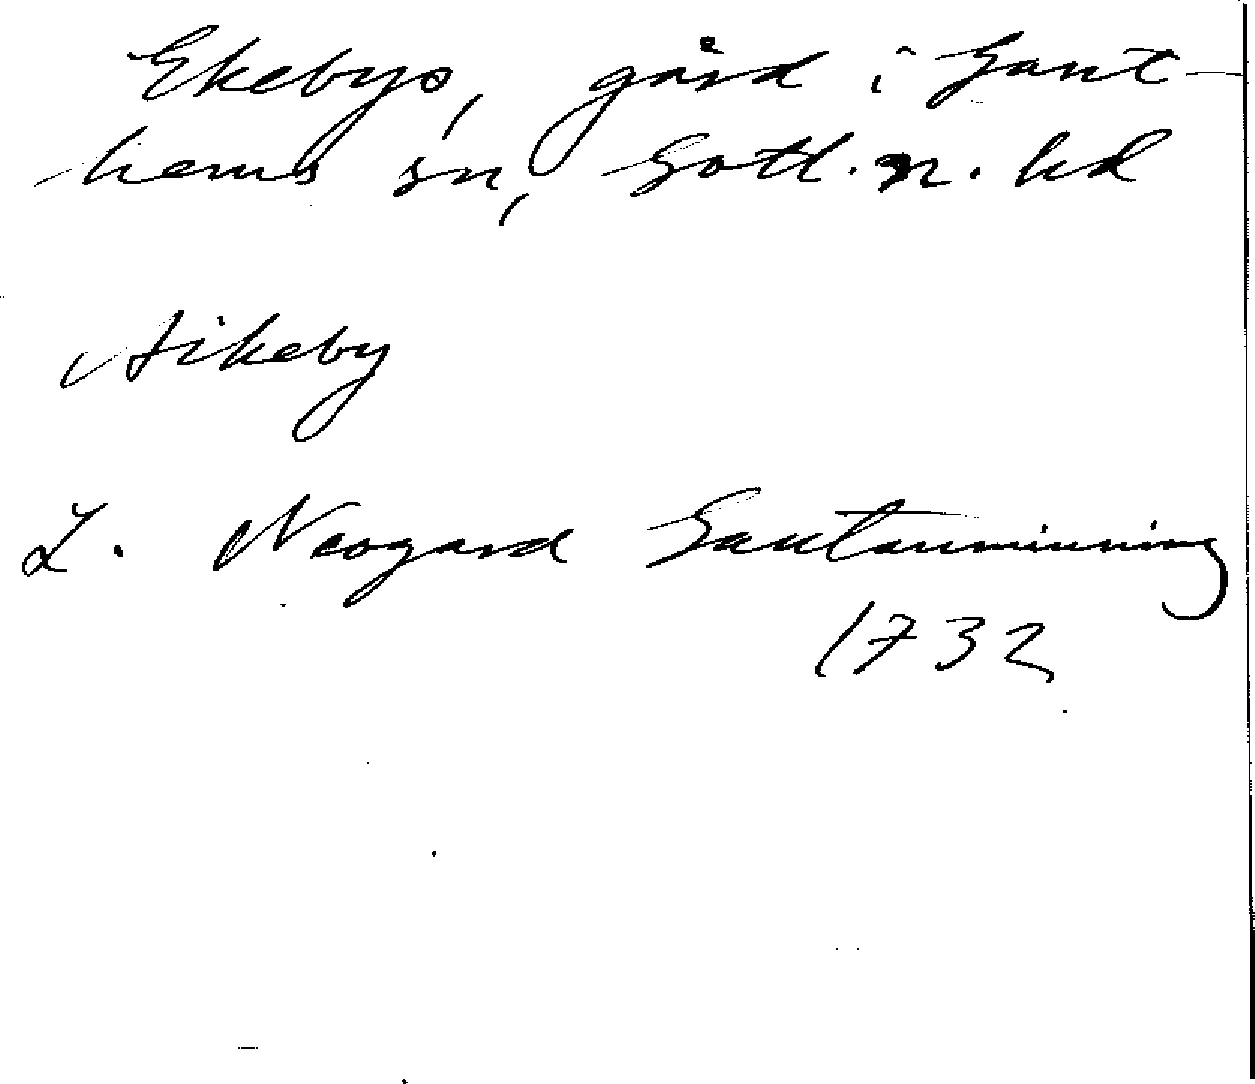 Ekebys, gård i Gant-
hems sn, Gotl. n. hd
Aikeby
L. Neogard Gautauminning
1732